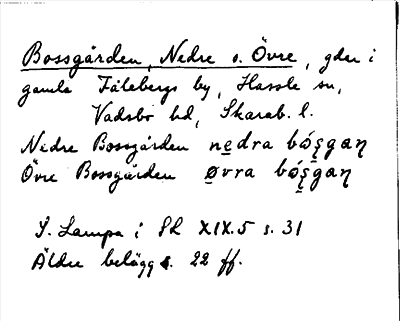 Bossgården, Nedre o. Övre, gdar i
gamla Fåleberg by, Hassle sn,
Vadsbo hd, Skarab. l.
Nedre Bossgården nedra bósgaŋ
Övre Bossgården øvra bósgaŋ
S. Lampa i SL XIX.5 s. 31
Äldre belägg s. 22 ff.